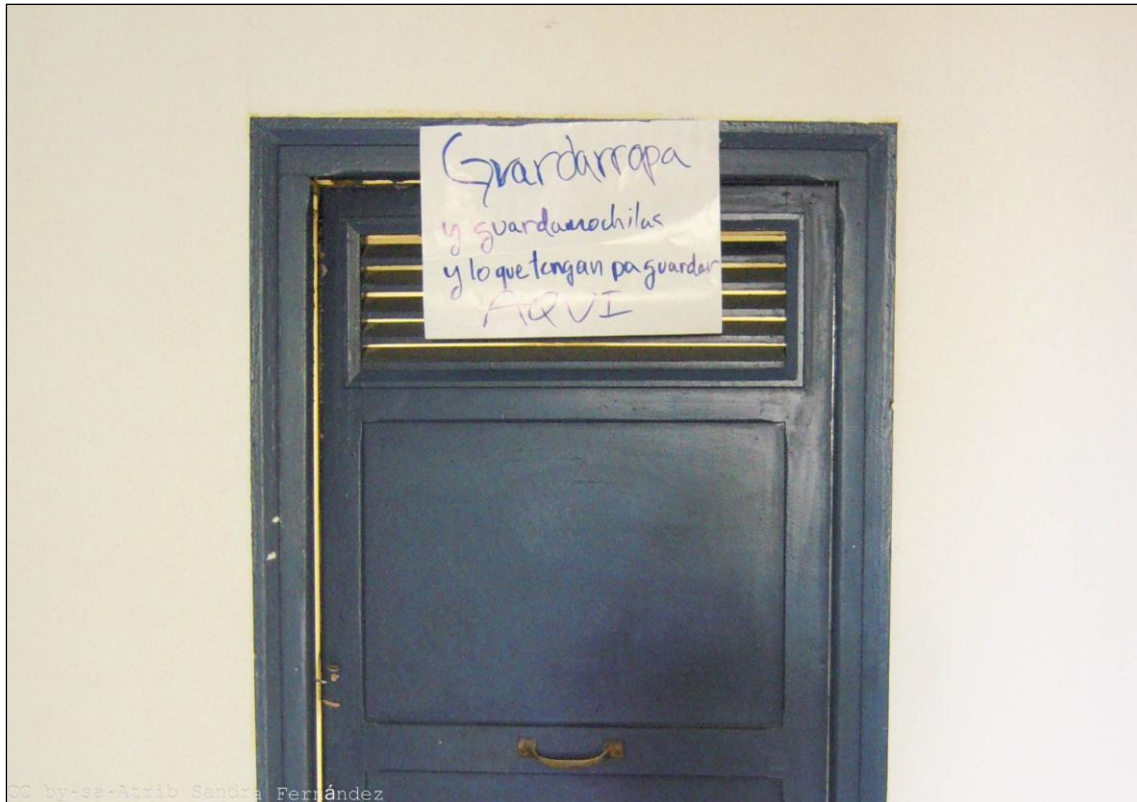 Guardarropa
y guardamochilas
y lo que tengan pa guardar
AQUI
CC by-sa-Atrib Sandra Fernández